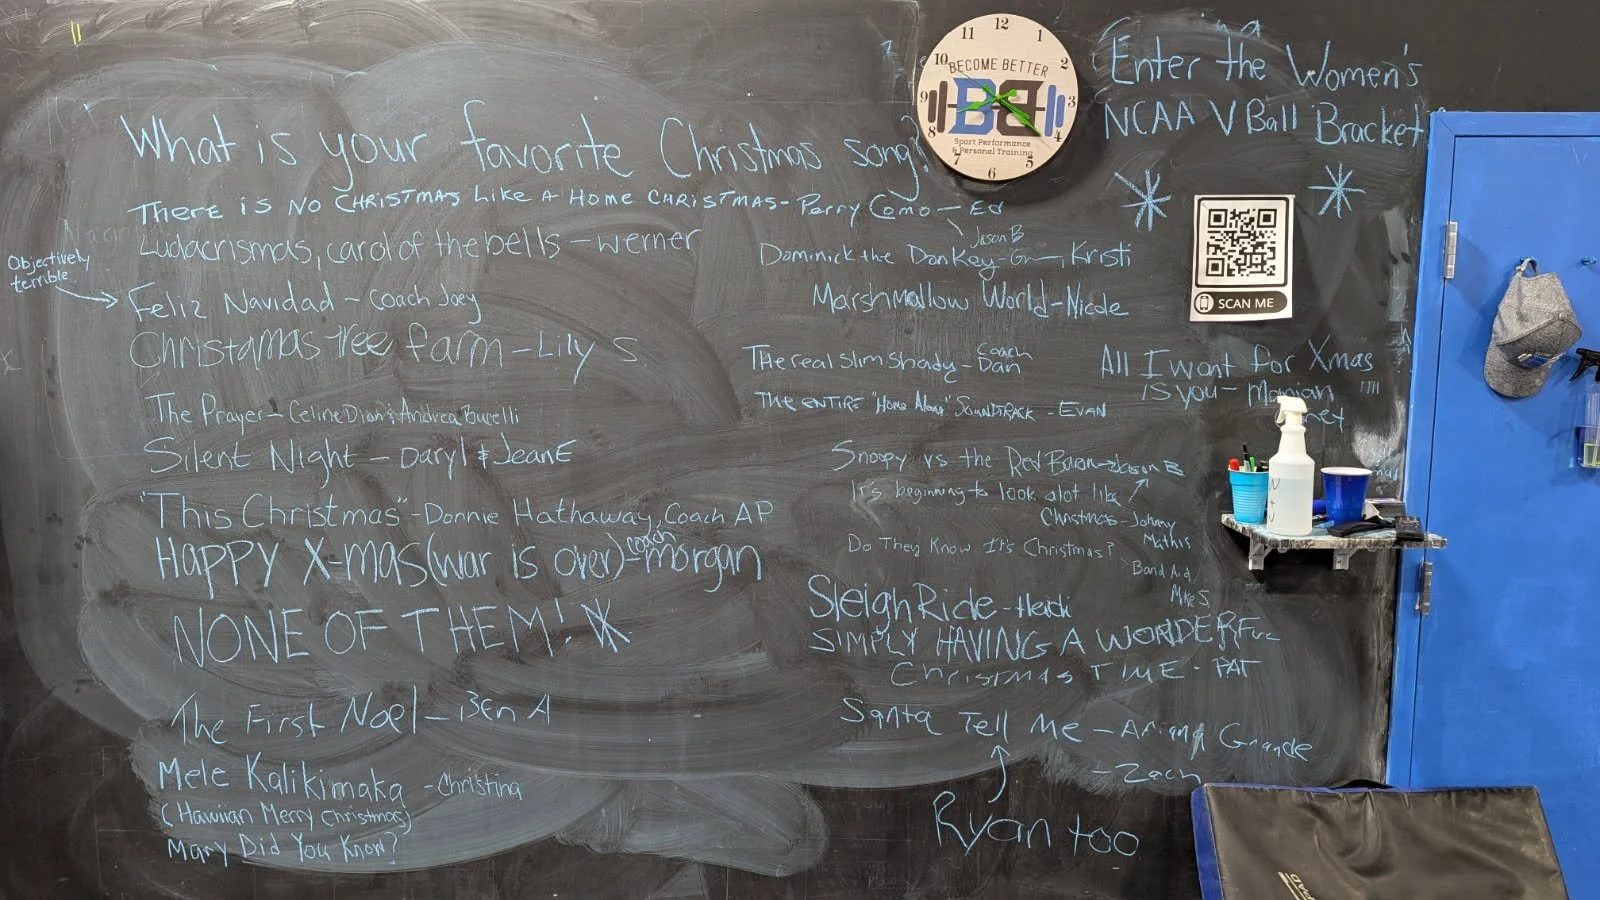 What is your favorite Christmas song?
THERE IS NO CHRISTMAS LIKE A HOME CHRISTMAS - Perry Como - Ed
Ludacrismas, carol of the bells - werner
Objectively
terrible
Feliz Navidad - Coach Joey
Christamas tree farm - Lily S.
The Prayer - Celine Dion & Andrea Bucelli
Silent Night - Daryl & JeanE
"This Christmas" - Donnie Hathaway, Coach AP
HAPPY X-mas (war is over) - coach morgan
NONE OF THEM!
The First Noel - Ben A
Mele Kalikimaka - Christina
(Hawiian Merry Christmas)
Mary Did You Know?
Jason B
Dominick the Donkey - Kristi
Marshmallow World - Nicole
The real slim shady - Coach Dan
THE ENTIRE "Home Alone" SOUNDTRACK - EVAN
Snoopy vs the Red Baron - Jason B
It's beginning to look alot like
Christmas - Johnny
Mathis
Do They Know It's Christmas?
Band Aid
Mike S
Sleigh Ride - Heidi
SIMPLY HAVING A WONDERFUL
CHRISTMAS TIME - PAT
Santa Tell Me - Ariana Grande
- Zach
Ryan too
12
1
2
3
4
5
6
7
8
9
10
11
BECOME BETTER
BB
Sport Performance
& Personal Training
Enter the Women's
NCAA V Ball Bracket
SCAN ME
All I want for Xmas
is you -
PAD